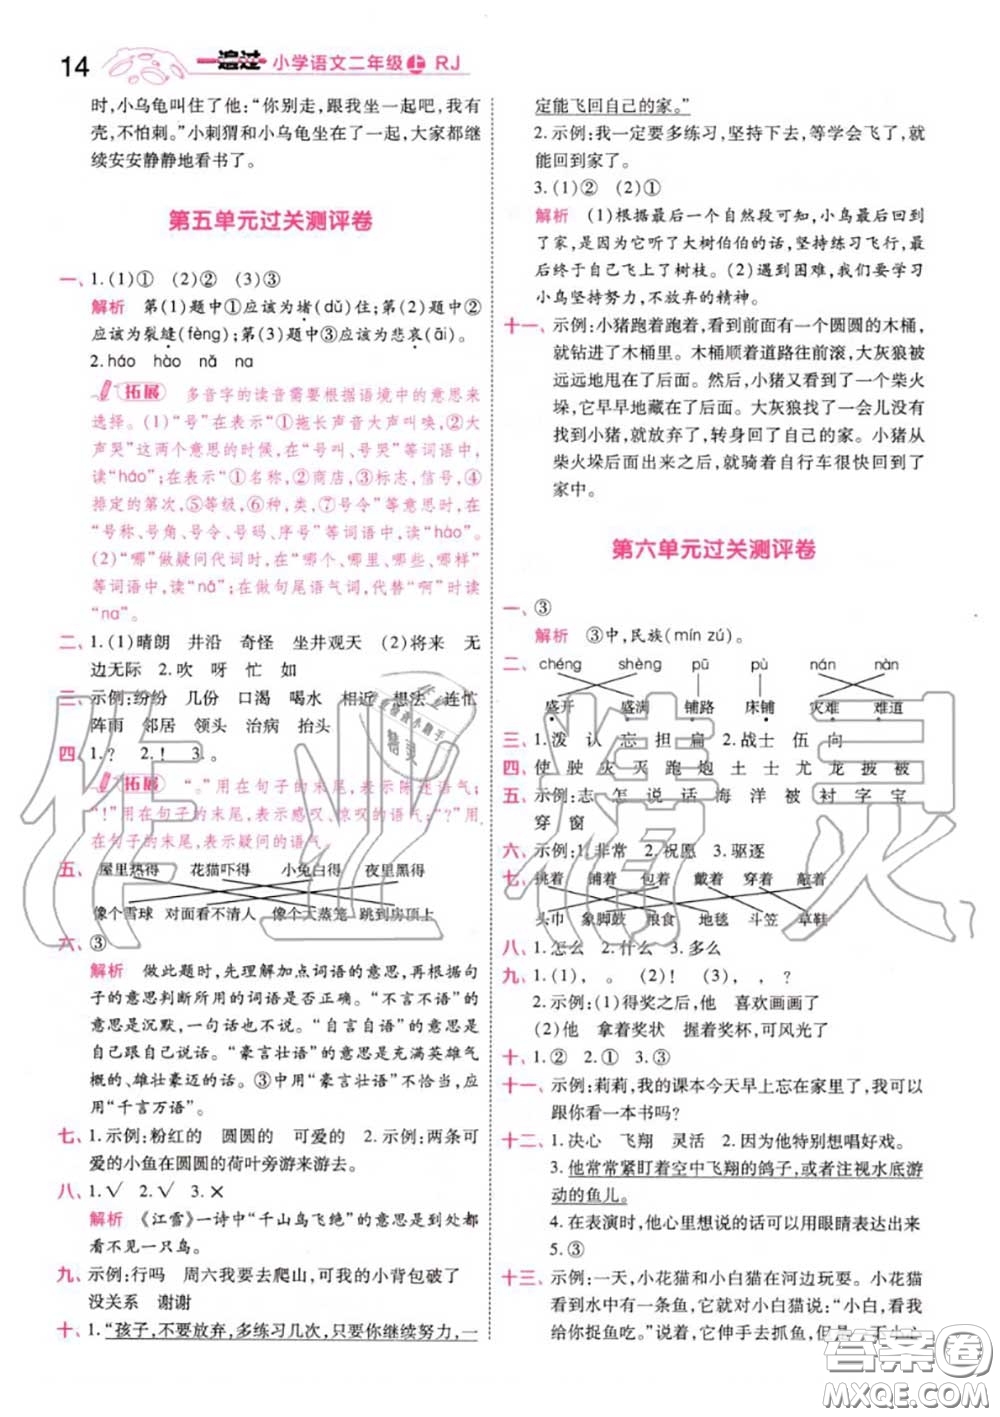 14 一遍过 小学语文二年级 上 RJ
时，小乌龟叫住了他：“你别走，跟我坐一起吧，我有
壳，不怕刺。”小刺猬和小乌龟坐在了一起，大家都继
续安安静静地看书了。
第五单元过关测评卷
一、1.(1)① (2)② (3)③
解析 第(1)题中①应该为堵(dǔ)住；第(2)题中②
应该为裂缝(fèng)；第(3)题中③应该为悲哀(āi)。
2. háo hào nǎ na
拓展 多音字的读音需要根据语境中的意思来
选择。(1)“号”在表示“①拖长声音大声叫唤，②大
声哭”这两个意思的时候，在“号叫、号哭”等词语中，
读“háo”；在表示“①名称，②商店，③标志，信号，④
排定的第次，⑤等级，⑥种，类，⑦号令”等意思时，在
“号称、号角、号令、号码、序号”等词语中，读“hào”。
(2)“哪”做疑问代词时，在“哪个、哪里、哪些、哪样”
等词语中，读“nǎ”；在做句尾语气词，代替“啊”时读
“na”。
二、1.(1)晴朗 井沿 奇怪 坐井观天 (2)将来 无
边无际 2.吹 呀 忙 如
三、示例：纷纷 几份 口渴 喝水 相近 想法 连忙
阵雨 邻居 领头 治病 抬头
四、1.？ 2.！ 3.。
拓展 “。”用在句子的末尾，表示陈述语气；
“！”用在句子的末尾，表示感叹、惊叹的语气；“？”用
在句子的末尾，表示疑问的语气。
五、屋里热得 花猫吓得 小兔白得 夜里黑得
像个雪球 对面看不清人 像个大蒸笼 跳到房顶上
六、③
解析 做此题时，先理解加点词语的意思，再根据句
子的意思判断所用的词语是否正确。“不言不语”的
意思是沉默，一句话也不说。“自言自语”的意思是
自己跟自己说话。“豪言壮语”的意思是充满英雄气
概的、雄壮豪迈的话。③中用“豪言壮语”不恰当，应
用“千言万语”。
七、1.示例：粉红的 圆圆的 可爱的 2.示例：两条可
爱的小鱼在圆圆的荷叶旁游来游去。
八、1.√ 2.√ 3.×
解析 《江雪》一诗中“千山鸟飞绝”的意思是到处都
看不见一只鸟。
九、示例：行吗 周六我要去爬山，可我的小背包破了
没关系 谢谢
十、1.“孩子，不要放弃，多练习几次，只要你继续努力，一
定能飞回自己的家。”
2.示例：我一定要多练习，坚持下去，等学会飞了，就
能回到家了。
3.(1)② (2)①
解析 (1)根据最后一个自然段可知，小鸟最后回到
了家，是因为它听了大树伯伯的话，坚持练习飞行，
最后终于自己飞上了树枝。(2)遇到困难，我们要向
小鸟坚持努力，不放弃的精神。
十一、示例：小猪跑着跑着，看到前面有一个圆圆的木桶，
就钻进了木桶里。木桶顺着道路往前滚，大灰狼被
远远地甩在了后面。然后，小猪又看到了一个柴火
垛，它早早地藏在了后面。大灰狼找了一会儿没有
找到小猪，就放弃了，转身回了自己的家。小猪从
柴火垛后面出来之后，就骑着自行车很快回到了
家中。
第六单元过关测评卷
一、③
解析 ③中，民族(mín zú)。
二、chéng shèng pū pù nán nàn
盛开 盛满 铺路 床铺 灾难 难道
三、1.泼 认 忘 担 扁 2.战士 伍 向
四、使 驶 灾 灭 跑 炮 土 士 尤 龙 披 被
五、示例：志 怎 说 话 海 洋 被 衬 字 宝
穿 窗
六、示例：1.非常 2.祝愿 3.驱逐
七、挑着 铺着 包着 戴着 穿着 敲着
头巾 象脚鼓 粮食 地毯 斗笠 草鞋
八、1.怎么 2.什么 3.多么
九、1.(1)， 。 (2)！ (3)， ， ？
2.示例：(1)得奖之后，他 喜欢画画了
(2)他 拿着奖状 握着奖杯，可风光了
十、1.② 2.① 3.③
十一、示例：莉莉，我的课本今天早上忘在家里了，我可以
跟你看一本书吗？
十二、1.决心 飞翔 灵活 2.因为他特别想唱好戏。
3.他常常紧盯着空中飞翔的鸽子，或者注视水底游
动的鱼儿。
4.在表演时，他心里想说的话可以用眼睛表达出来
5.③
十三、示例：一天，小花猫和小白猫在河边玩耍。小花猫
看到水中有一条鱼，对小白猫说：“小白，看我
给你捉鱼吃。”说着，它伸手去抓鱼，但是
作业精灵
答案圈
MXQE.COM